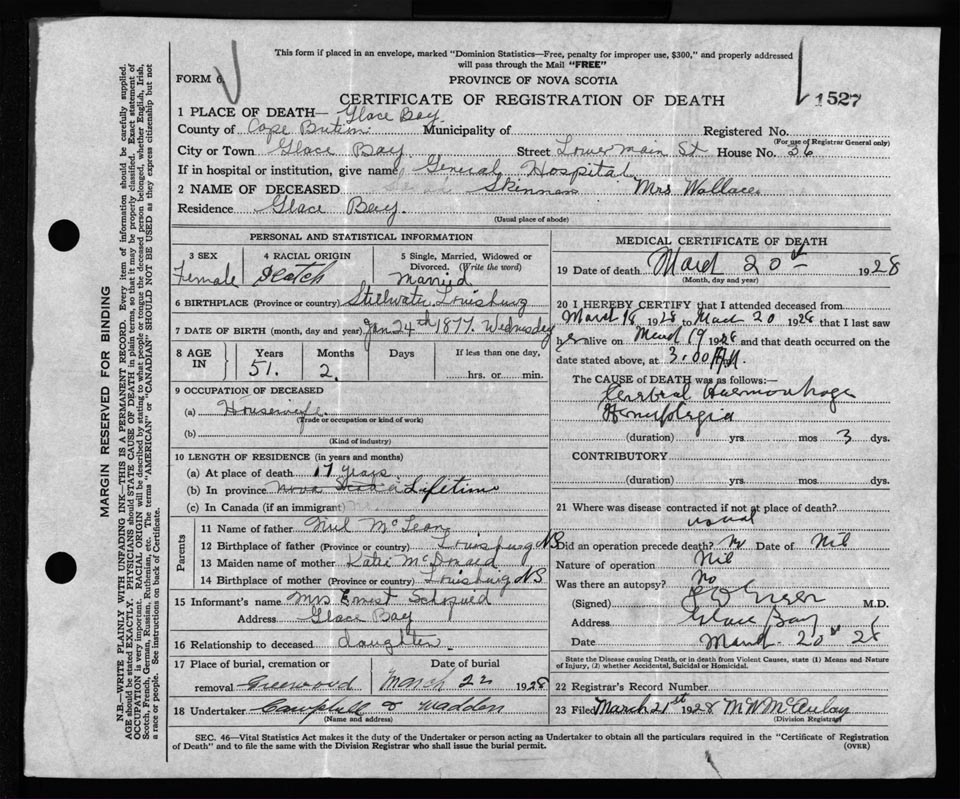 This form if placed in an envelope, marked "Dominion Statistics—Free, penalty for improper use, $300," and properly addressed
will pass through the Mail "FREE"
FORM 6
PROVINCE OF NOVA SCOTIA
CERTIFICATE OF REGISTRATION OF DEATH
1527
1 PLACE OF DEATH— Glace Bay
County of Cape Breton Municipality of Registered No.
(For use of Registrar General only)
City or Town Glace Bay Street Lower Main St House No. 36
If in hospital or institution, give name General Hospital
2 NAME OF DECEASED Skinner Mrs Wallace
Residence Glace Bay.
(Usual place of abode)
PERSONAL AND STATISTICAL INFORMATION
3 SEX 4 RACIAL ORIGIN 5 Single, Married, Widowed or
Divorced. (Write the word)
Female Scotch Married
6 BIRTHPLACE (Province or country) Stillwater Louisburg
7 DATE OF BIRTH (month, day and year) Jan 24th 1877. Wednesday
8 AGE IN Years Months Days If less than one day,
51. 2. hrs. or min.
9 OCCUPATION OF DECEASED
(a) Housewife
(Trade or occupation or kind of work)
(b)
(Kind of industry)
10 LENGTH OF RESIDENCE (in years and months)
(a) At place of death 17 years
(b) In province Nova Scotia Lifetime
(c) In Canada (if an immigrant)
Parents
11 Name of father Neil McLean
12 Birthplace of father (Province or country) Louisburg NS
13 Maiden name of mother Katie McDonald
14 Birthplace of mother (Province or country) Louisburg NS
15 Informant's name Mrs Ernest
Address Glace Bay
16 Relationship to deceased daughter
17 Place of burial, cremation or Date of burial
removal Greenwood March 22 1928
18 Undertaker Campbell & Wadden
(Name and address)
MEDICAL CERTIFICATE OF DEATH
19 Date of death March 20th 1928
(Month, day and year)
20 I HEREBY CERTIFY that I attended deceased from
March 18 1928 to March 20 1928 that I last saw
her alive on March 19 1928 and that death occurred on the
date stated above, at 3.00 AM.
The CAUSE of DEATH was as follows:—
Cerebral Haemorrhage
Hemiplegia
(duration) yrs. mos 3 dys.
CONTRIBUTORY
(duration) yrs. mos dys.
21 Where was disease contracted if not at place of death?
usual
Did an operation precede death? No Date of Nil
Nature of operation Nil
Was there an autopsy? No
(Signed) M.D.
Address Glace Bay
Date March 20th 28
State the Disease causing Death, or in death from Violent Causes, state (1) Means and Nature
of Injury, (2) whether Accidental, Suicidal or Homicidal.
22 Registrar's Record Number
23 Filed March 21st 1928 M W McAulay
(Division Registrar)
SEC. 46—Vital Statistics Act makes it the duty of the Undertaker or person acting as Undertaker to obtain all the particulars required in the "Certificate of Registration
of Death" and to file the same with the Division Registrar who shall issue the burial permit.
(OVER)
MARGIN RESERVED FOR BINDING
N.B.—WRITE PLAINLY WITH UNFADING INK—THIS IS A PERMANENT RECORD. Every item of information should be carefully supplied.
AGE should be stated EXACTLY. PHYSICIANS should STATE CAUSE OF DEATH in plain terms, so that it may be properly classified. Exact statement of
OCCUPATION is very important. RACIAL ORIGIN will be described by stating to what people or tongue the deceased person belonged, whether English, Irish,
Scotch, French, German, Russian, Ruthenian, etc. The terms "AMERICAN" or "CANADIAN" SHOULD NOT BE USED as they express citizenship but not
a race or people. See instructions on back of Certificate.